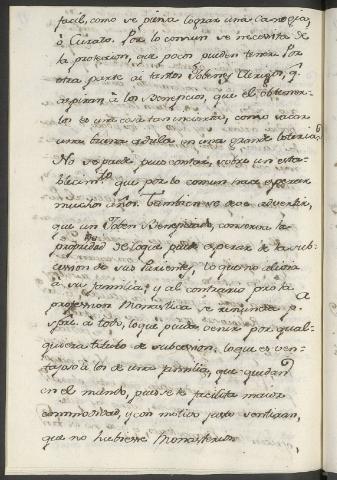 facil, como se piensa lograr una Canogia,
ò Curato. Por lo comun se necesita de
la proteccion, que pocos pueden tener. Por
otra parte ai tantos Jobenes Clerigos, q.e
aspiran à los Beneficios, que el obtener-
los es una cosa tan incierta, como sacar
una buena cedula en una grande loteria.
No se puede pues contar sobre un esta-
blecim.to que por lo comun hace esperar
muchos años. Tambien se debe advertir,
que un Joben Beneficiado, conserva la
propiedad de lo que puede esperar de la sub-
cession de sus Parientes, lo que no alivia
a su familia; y al contrario pro la
profession Monastica se renuncia p.a
spre. a todo, lo que pueda venir por qual-
quiera titulo de subcession: lo que es ven-
tajoso à los de una familia, que quedan
en el mundo, pues se le facilita maior
commosidad, y con motivo justo sentiran,
que no hubiesse Monasterios